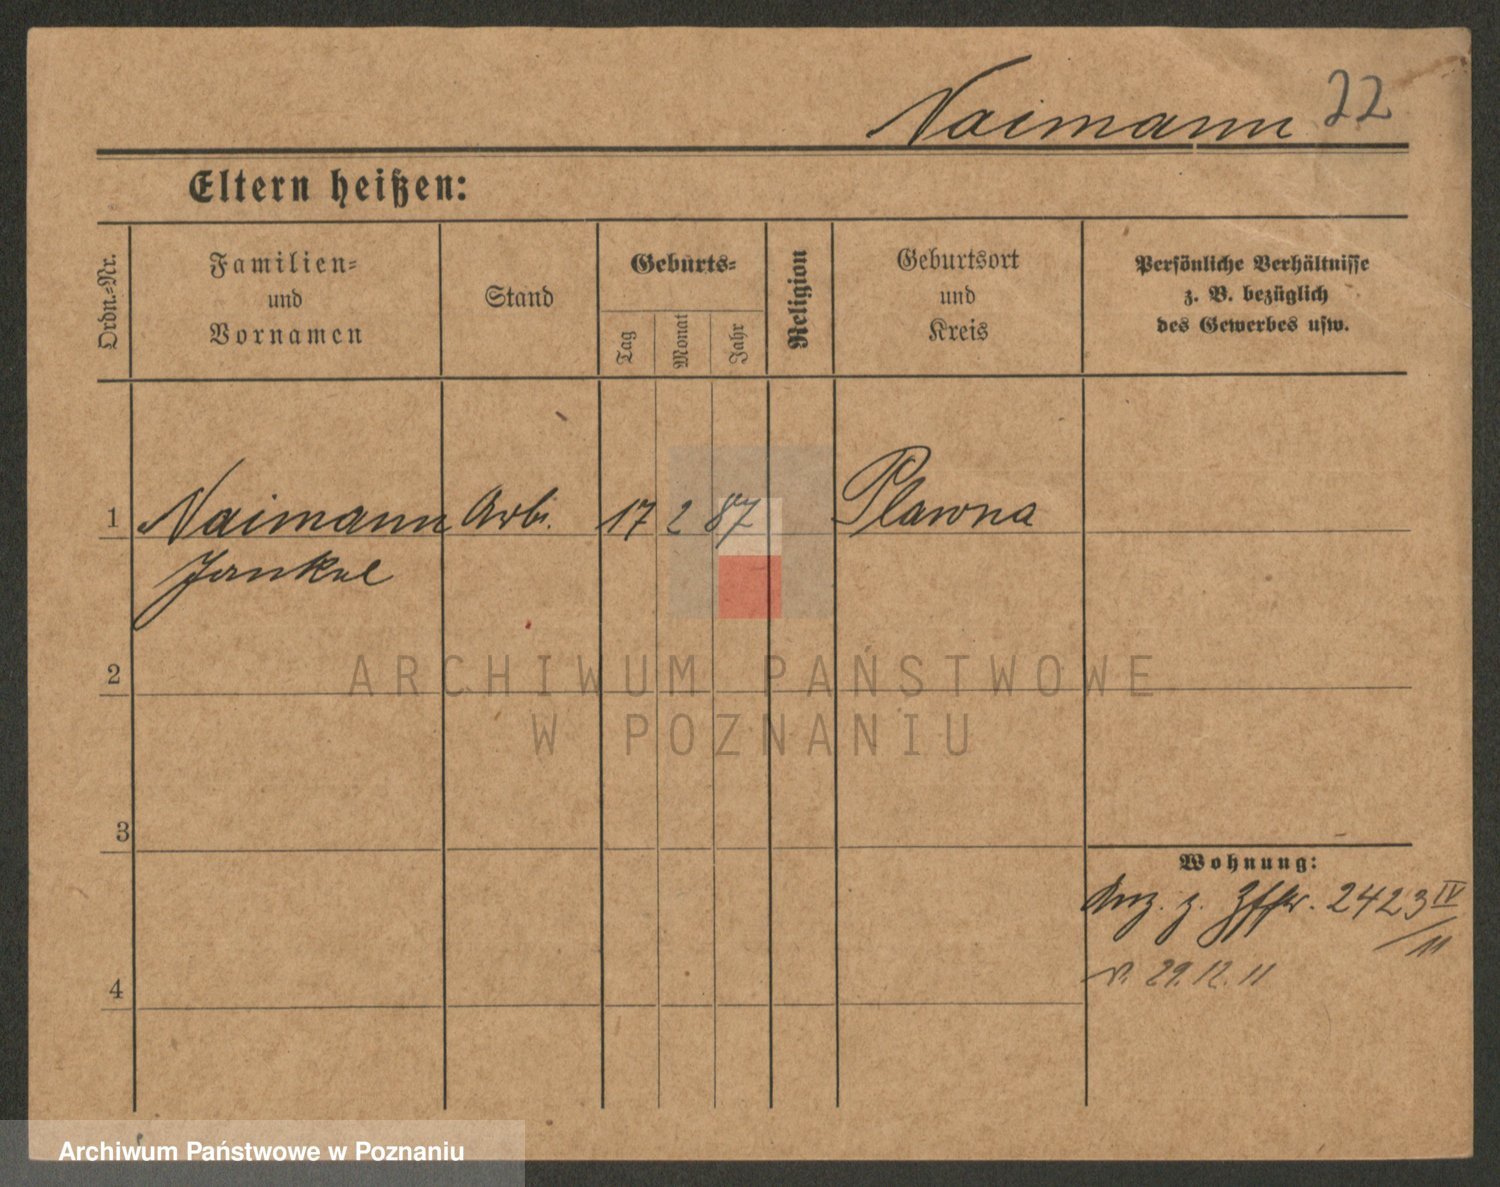 Naimann 22
Eltern heißen:
Ordn.-Nr.
Familien-
und
Vornamen
Stand
Geburts-
Tag
Monat
Jahr
Religion
Geburtsort
und
Kreis
Persönliche Verhältnisse
z. B. bezüglich
des Gewerbes usw.
1 Naimann Arb. 17 2 87 Plawna
Jankel
2
ARCHIWUM PAŃSTWOWE
W POZNANIU
3
Wohnung:
Anz. z. 2423 IV
11
v. 29.12.11
4
Archiwum Państwowe w Poznaniu